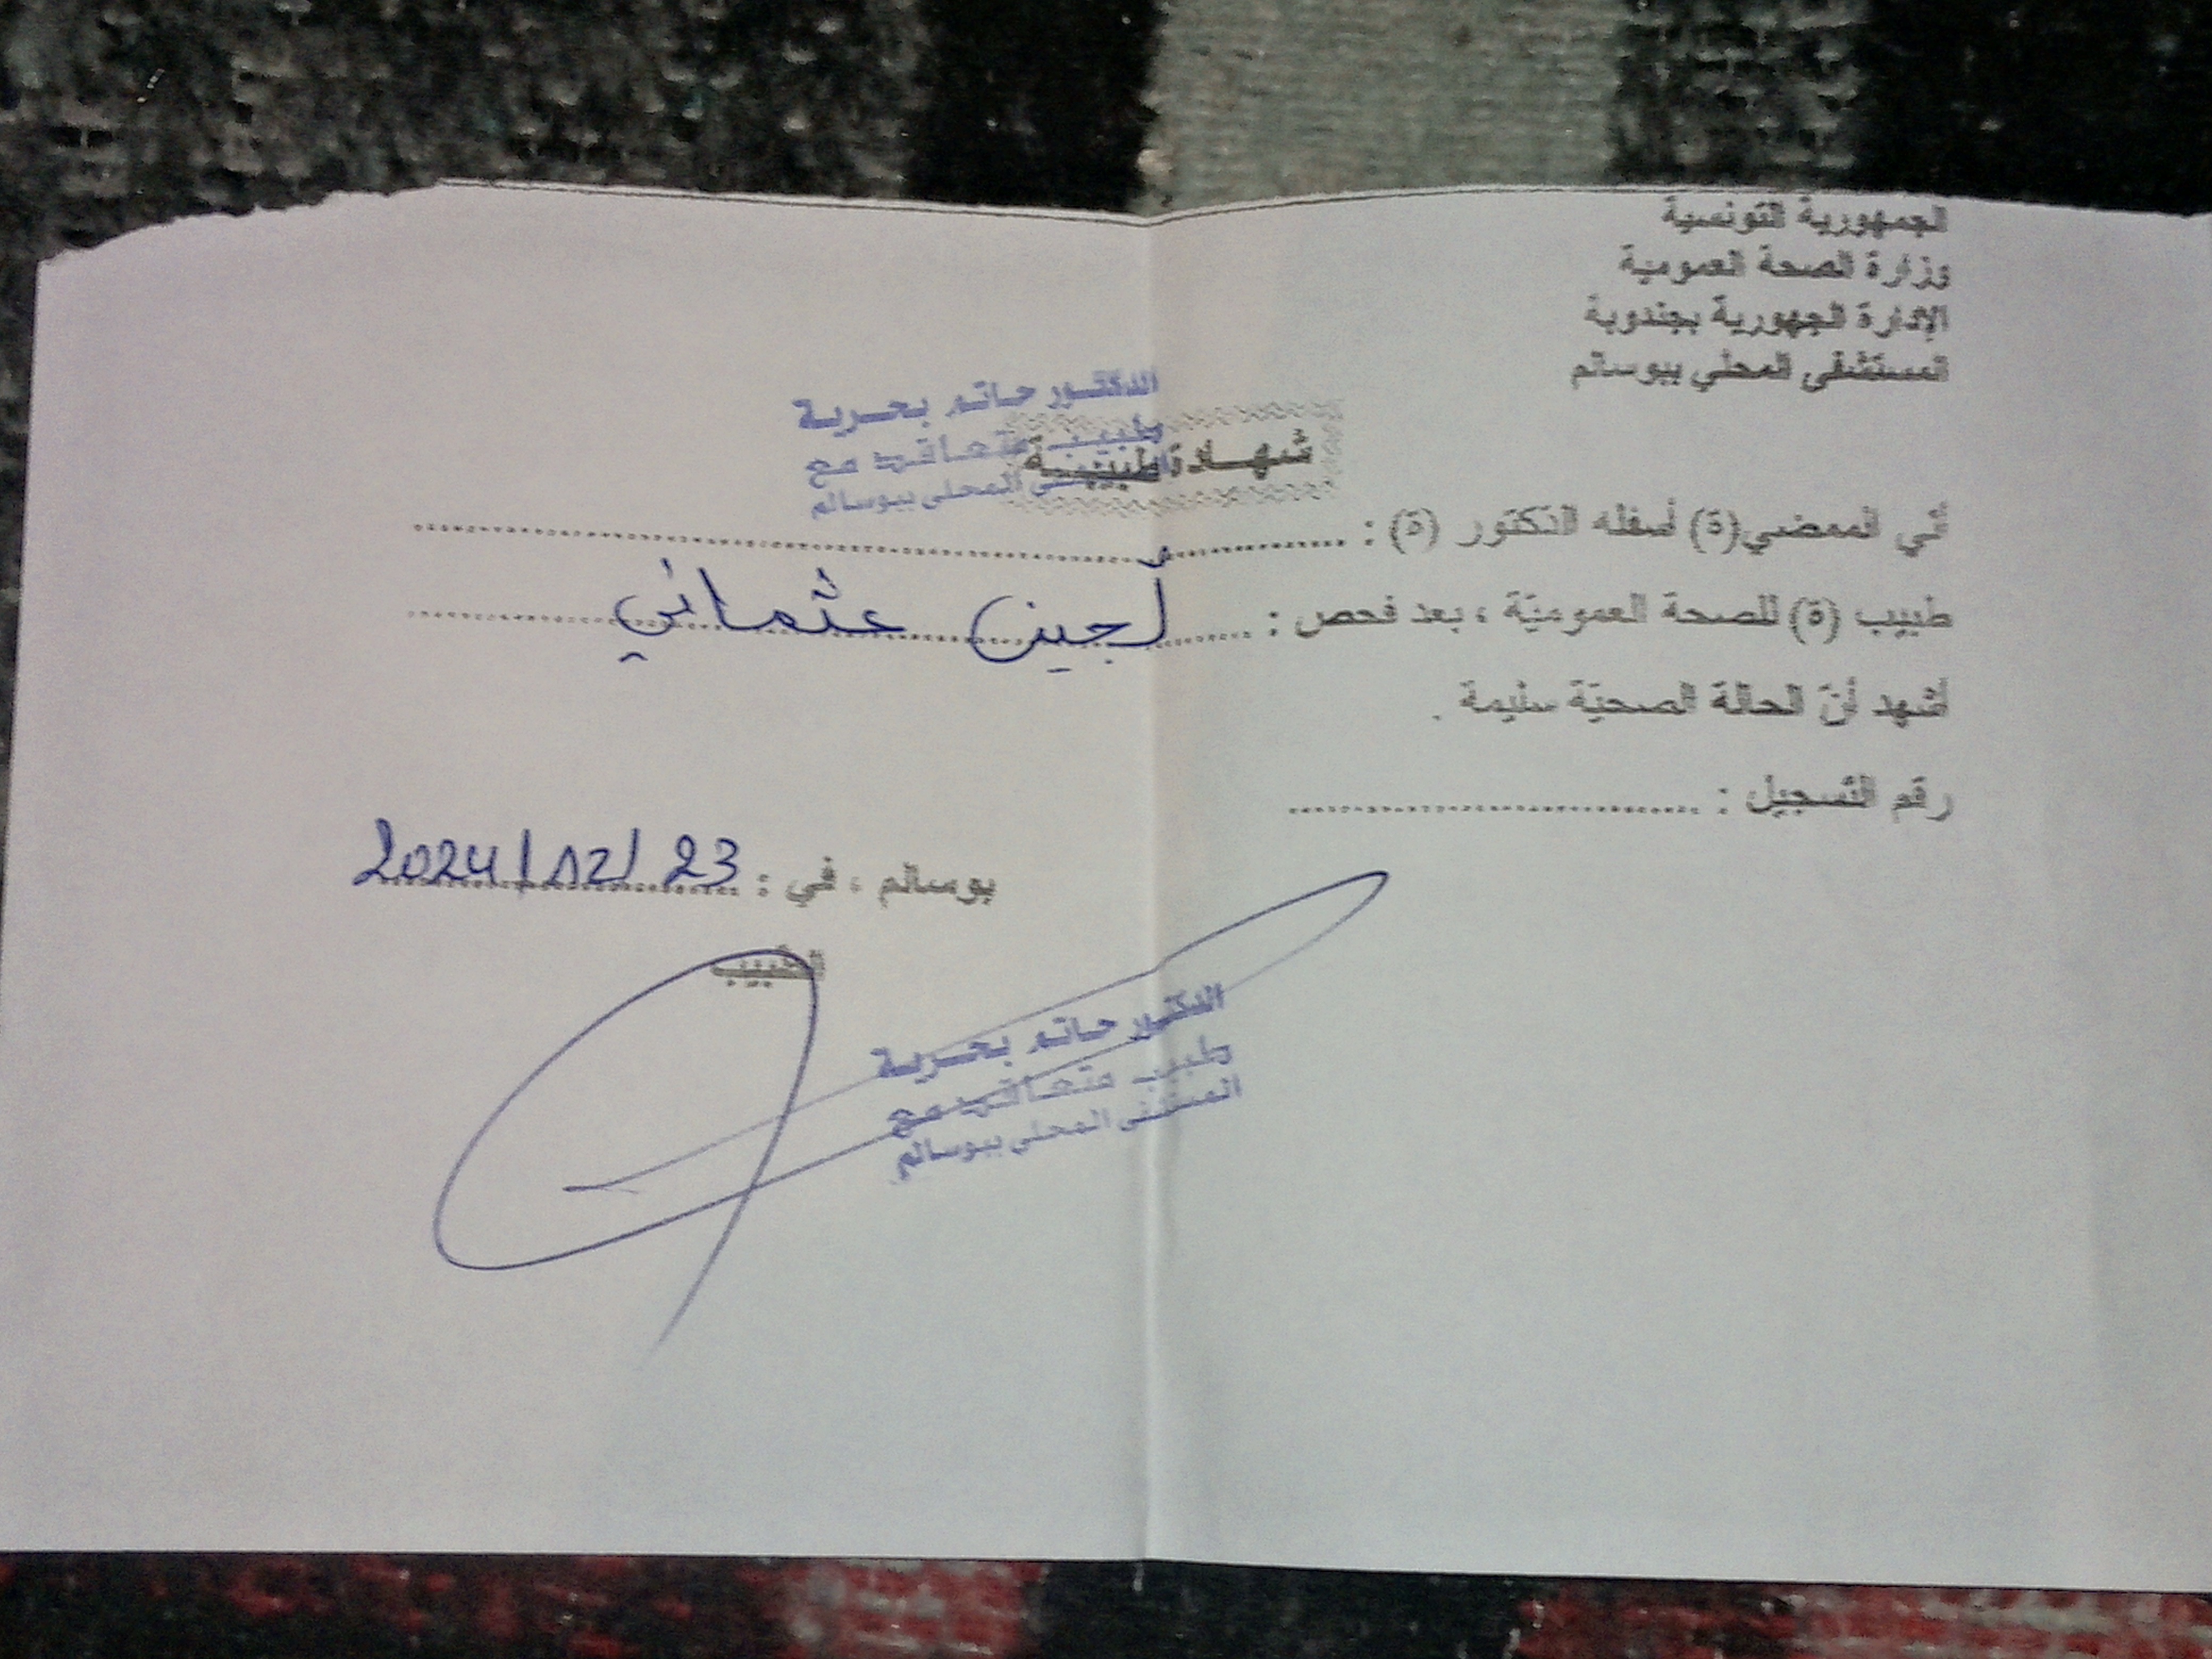 الجمهورية التونسية
وزارة الصحة العمومية
الإدارة الجهورية بجندوبة
المستشفى المحلي ببوسالم
الدكتور حاتم بحرية
طبيب متعاقد مع
المستشفى المحلي ببوسالم
شهادة طبية
إني الممضي(ة) أسفله الدكتور (ة) :
طبيب (ة) للصحة العموميّة ، بعد فحص : لجين عثماني
أشهد أنّ الحالة الصحيّة سليمة .
رقم التسجيل :
بوسالم ، في : 23 /12/ 2024
الطبيب
الدكتور حاتم بحرية
طبيب متعاقد مع
المستشفى المحلي ببوسالم